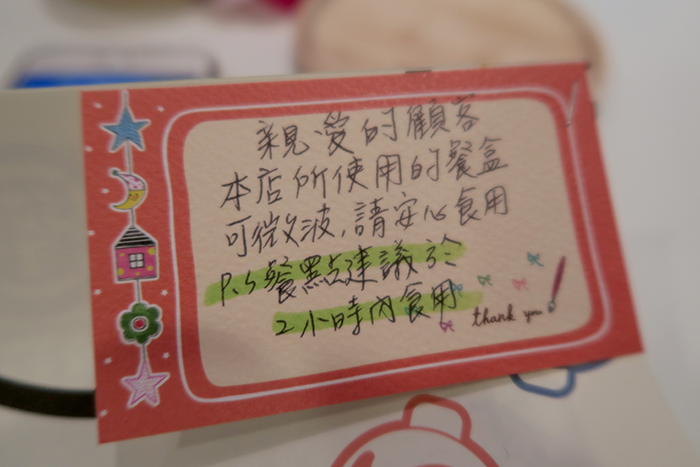 親愛的顧客
本店所使用的餐盒
可微波,請安心食用
P.S餐點建議於
2小時內食用
thank you